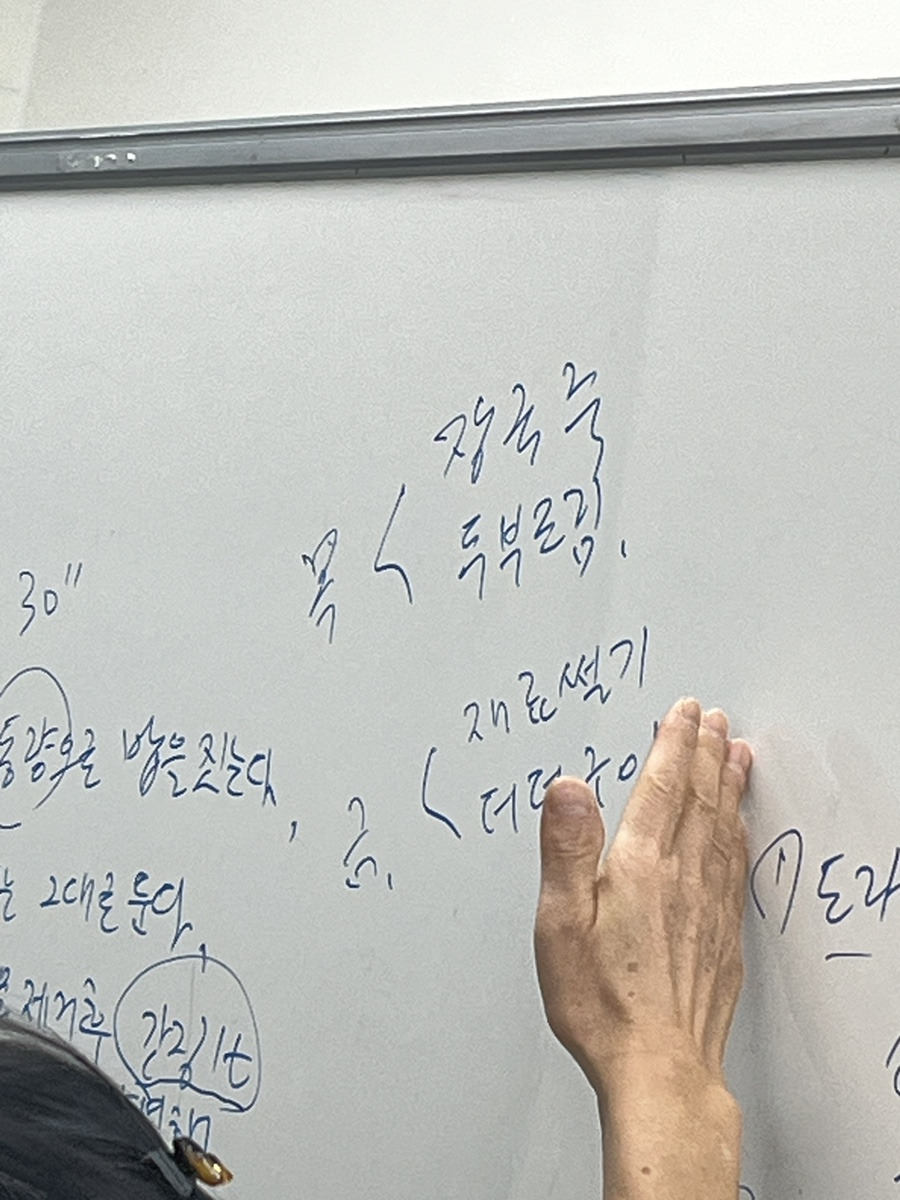 장국죽
목 < 두부조림,
30"
재료썰기
금, < 더덕구이
동량으로 밥을 짓는다,
는 2대로 둔다,
제거후 간장1t
① 도라